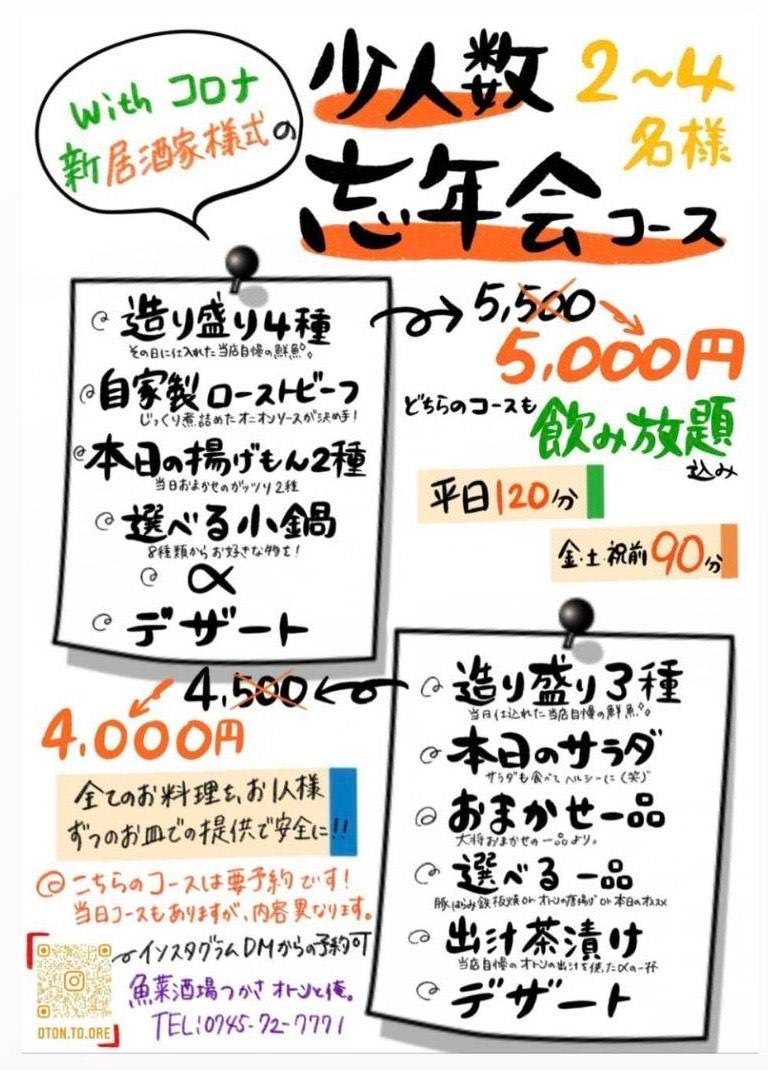 with コロナ
新居酒家様式の
少人数
2〜4
名様
忘年会コース
造り盛り4種
その日に仕入れた当店自慢の鮮魚。
自家製ローストビーフ
じっくり煮詰めたオニオンソースが決め手!
本日の揚げもん2種
当日おまかせのガッツリ2種
選べる小鍋
8種類からお好きな物を!
α
デザート
5,500
5,000円
どちらのコースも
飲み放題
込み
平日120分
金・土・祝前90分
4,500
4,000円
造り盛り3種
当日仕込れた当店自慢の鮮魚。
本日のサラダ
サラダも食べてヘルシーに(笑)
おまかせ一品
大将おまかせの一品より。
選べる一品
豚はらみ鉄板焼 or オトンの唐揚げ or 本日のオススメ
出汁茶漬け
当店自慢のオトンの出汁を使ったαの一杯
デザート
全てのお料理を、お1人様
ずつのお皿での提供で安全に!!
こちらのコースは要予約です!
当日コースもありますが、内容異なります。
インスタグラムDMからの予約可
魚菜酒場つかさ オトンと俺。
TEL:0745-72-7771
OTON.TO.ORE